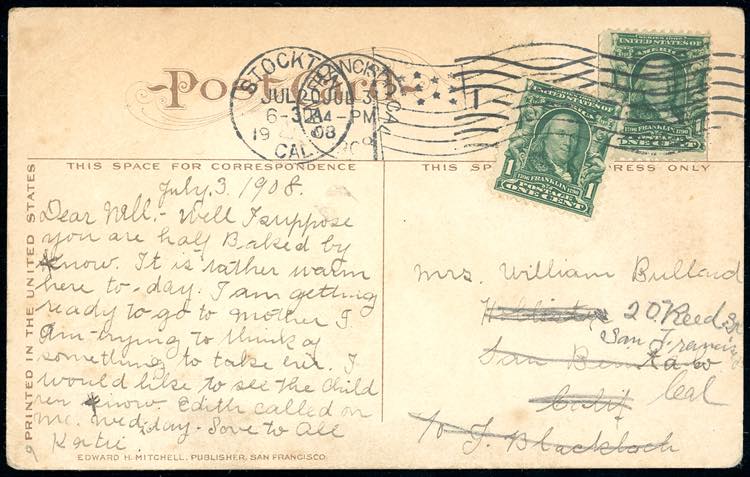 Post Card
STOCKTON
JUL 20
6-30
1908
CAL
JUL 3
4-PM
THIS SPACE FOR CORRESPONDENCE
THIS SP
PRESS ONLY
SERIES 1902
UNITED STATES OF
AMERICA
1
1
1706 FRANKLIN 1790
POSTAGE
ONE CENT
1
1
1706 FRANKLIN 1790
POSTAGE
ONE CENT
PRINTED IN THE UNITED STATES
July 3, 1908
Dear Nell,- Well I suppose
you are half Baked by
know. It is rather warm
here to-day. I am getting
ready to go to Mother I
Am trying to think of
something to take her. I
would like to see the child
ren know. Edith called on
me. Wedsday. Love to All
Katie.
Mrs. William Bullard
20 Reed
San Francis
San
Cal
Calif
c/o J. Blacklock
EDWARD H. MITCHELL, PUBLISHER, SAN FRANCISCO.